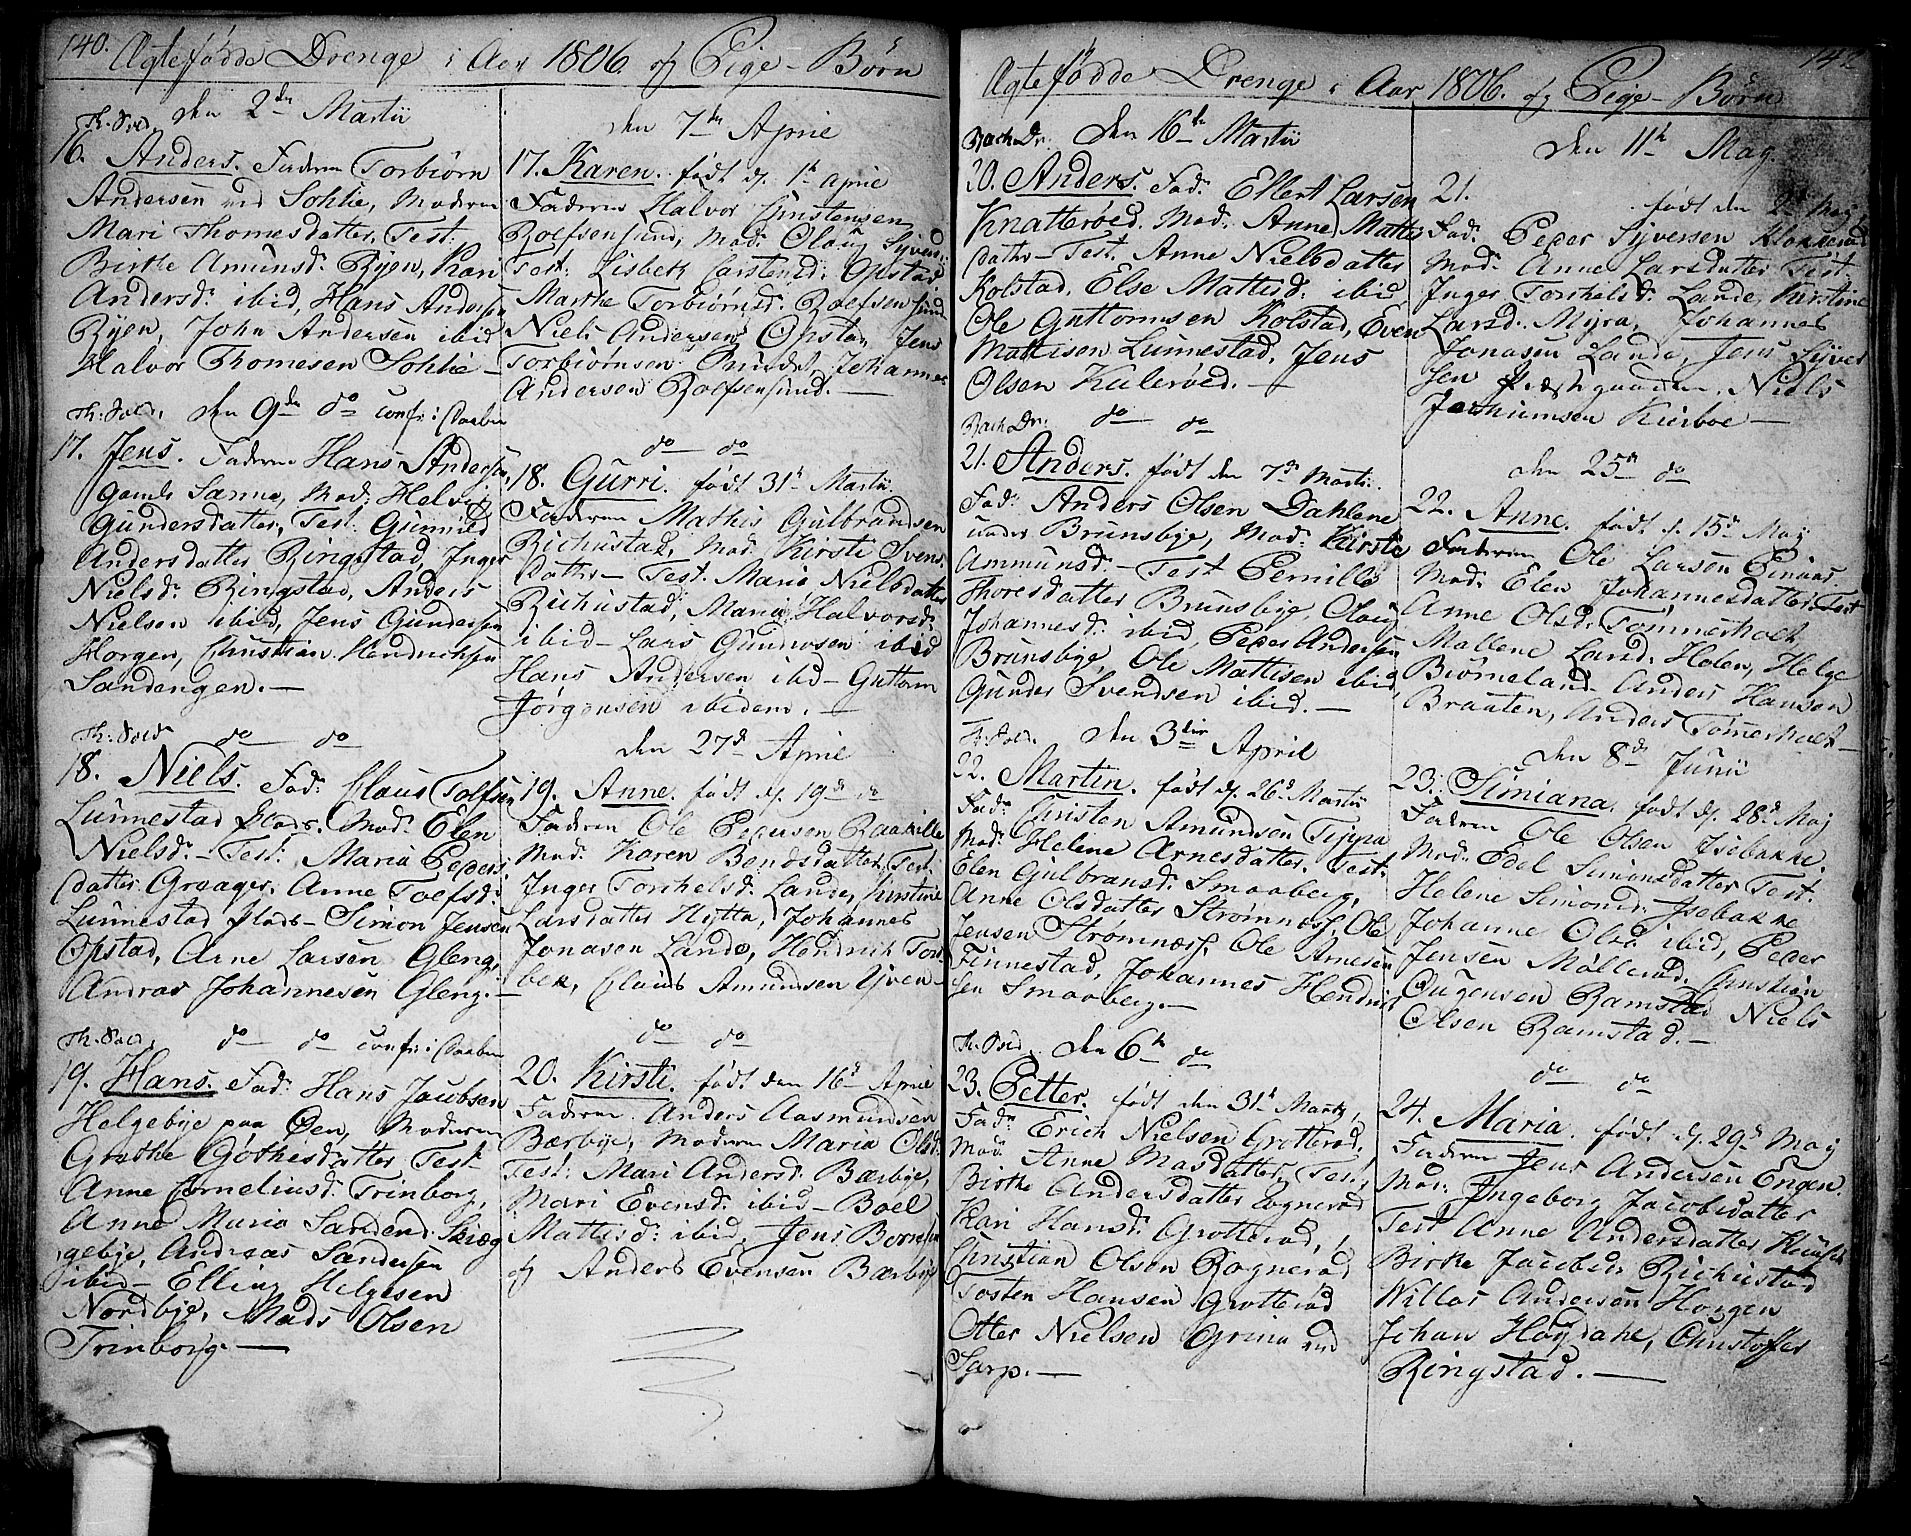 140. Ægtefødde Drenge i Aar 1806. og Pige-Børn
Th: Sold. den 2den Martii
16. Anders. Faderen Torbiørn
Andersen ved Sohlie, Moderen
Mari Thomesdatter, Test:
Birthe Amunsd: Ryen, Kari
Andersd: ibid, Hans Andersen
Ryen, John Andersen ibid
Halvor Thomesen Sohlie -
Th: Sold. den 9de do confr: i Daaben
17. Jens. Faderen Hans Andersen,
Gamle Sanne, Mod: Helvig
Gundersdatter, Test: Gunnild
Andersdatter Ringstad, Inger
Nielsd: Ringstad, Anders
Nielsen ibid, Jens Gundersen
Horgen, Christian Hendrichsen
Sandengen. -
Th: Sold. do do
18. Niels. Fad: Claus Tolfsen
Lunnestad Plads. Mod: Elen
Nielsd: - Test: Maria Peders
datter Graager. Anne Toefsd:
Lunnestad Plads - Simon Jensen
Opstad, Arne Larsen Gleng,
Andreas Johannesen Gleng. -
Th: Sold. do do confr: i Daaben
19. Hans. Fad: Hans Jacobsen
Helgebye paa Øen, Moderen
Grethe Gøthesdatter Test
Anne Corneliusd: Trinborg,
Anne Maria Sanden Skieg
gebye, Andreas Sandersen
ibid - Elling Helgesen
Nordbye, Mads Olsen
Trinborg. -
den 7de Aprie
17. Karen. født d. 1ste Aprie
Faderen Halvor Christensen
Roefsensund, Mod: Olaug Syverd:
Test: Lisbeth Carstensd: Opstad
Marthe Torbiørnsd: Roefsensund
Niels Andersen Opstad, Jens
Torbiørnsen Grindet, Johannes
Andersen Roefsensund. -
do do
18. Gurri. født 31te Martii
Faderen Mathis Gulbrandsen
Richustad, Mod: Kirsti Svens
datter - Test. Maria Nielsdatter
Richustad, Maria Halvorsd:
ibid - Lars Gundersen ibid
Hans Andersen ibid - Guttorm
Jørgensen ibidem. -
den 27de Aprie
19. Anne. født d. 19de do
Faderen Ole Pedersen Raakille
Mod: Karen Bendsdatter Test:
Inger Torchelsd: Lande, Kirstine
Larsdatter Hytta, Johannes
Jonasen Lande, Hendrich Tors
bek, Claus Amundsen Yven -
do do
20. Kirsti. født den 16de Aprie
Faderen Anders Aasmundsen
Bærbye, Moderen Maria Olsd:
Test: Mari Andersd: Bærbye,
Mari Evensd: ibid - Boel
Mattisd: ibid, Jens Bernsen
og Anders Evensen Bærbye
Ægtefødde Drenge i Aar 1806. og Pige-Børn 141
Bach Dr. den 16de Martii
20. Anders. Fad: Ellert Larsen
Knatterøed. Mod: Anne Mattis
datter - Test. Anne Nielsdatter
Kolstad, Else Mattisd: ibid
Ole Guttormsen Kolstad, Even
Mattisen Lunnestad, Jens
Olsen Kulerøed. -
Bach Dr. do do
21. Anders. født den 7de Marti:
Fad: Anders Olsen Dahlene
under Brunsbye, Mod: Kirstie
Ammunsd: - Test Pernille
Thoresdatter Brunsbye, Olaug
Johannesd: ibid, Peder Andersen
Brunsbye, Ole Mattisen ibid,
Gunder Svendsen ibid. -
Th: Sold. den 3die April
22. Martin. født d. 26de Martii
Fad: Christen Amundsen
Mod: Helene Arnesdatter. Test.
Elen Gulbransd: Smaaberg,
Anne Olsdatter Strømness, Ole
Jensen Strømness, Ole Arnesen
Finnestad, Johannes Hendrich
sen Smaaberg. -
Th: Sold. den 6te do
23. Petter. født den 31te Marti,
Fad: Erich Nielsen Grotterød.
Mod: Anne Masdatter, Test.
Birthe Andersdatter Rognerød
Kari Hansd: Grotterød,
Christian Olsen Rognerød
Tosten Hansen Grotterød
Otter Nielsen Grina ved
Sarp. -
den 11te May
21. født den 2de May
Fad: Peder Syversen
Mod: Anne Larsdatter Test.
Inger Torchelsd: Lande, Kirstine
Larsd: Myra, Johannes
Jonasen Lande, Jens Syver
sen Præstgaarden, Niels
Jochumsen Kirboe -
den 25de do
22. Anne. født d. 15de May
Faderen Ole Larsen
Mod: Elen Johannesdatter Test
Anne Olsd: Tømmerholt
Mallene Larsd: Holen, Helge
Biørneland - Anders Hansen
Braaten, Anders Tømmerholt -
den 8de Junii
23. Simiana. født d. 28de May
Faderen Ole Olsen Isebakke,
Mod: Edel Simonsdatter Test.
Helene Simonsd: Isebakke
Johanne Olsd: ibid, Peder
Jensen Møllerød, Christian
Ougensen Ramstad Niels
Olsen Ramstad. -
do do
24. Maria. født d. 29de May
Faderen Jens Andersen Engen.
Mod: Ingeborg Jacobsdatter
Test Anne Andersdatter
Birthe Jacobsd: Richustad
Willas Andersen Horgen
Johan Høydahl, Christoffer
Ringstad. -